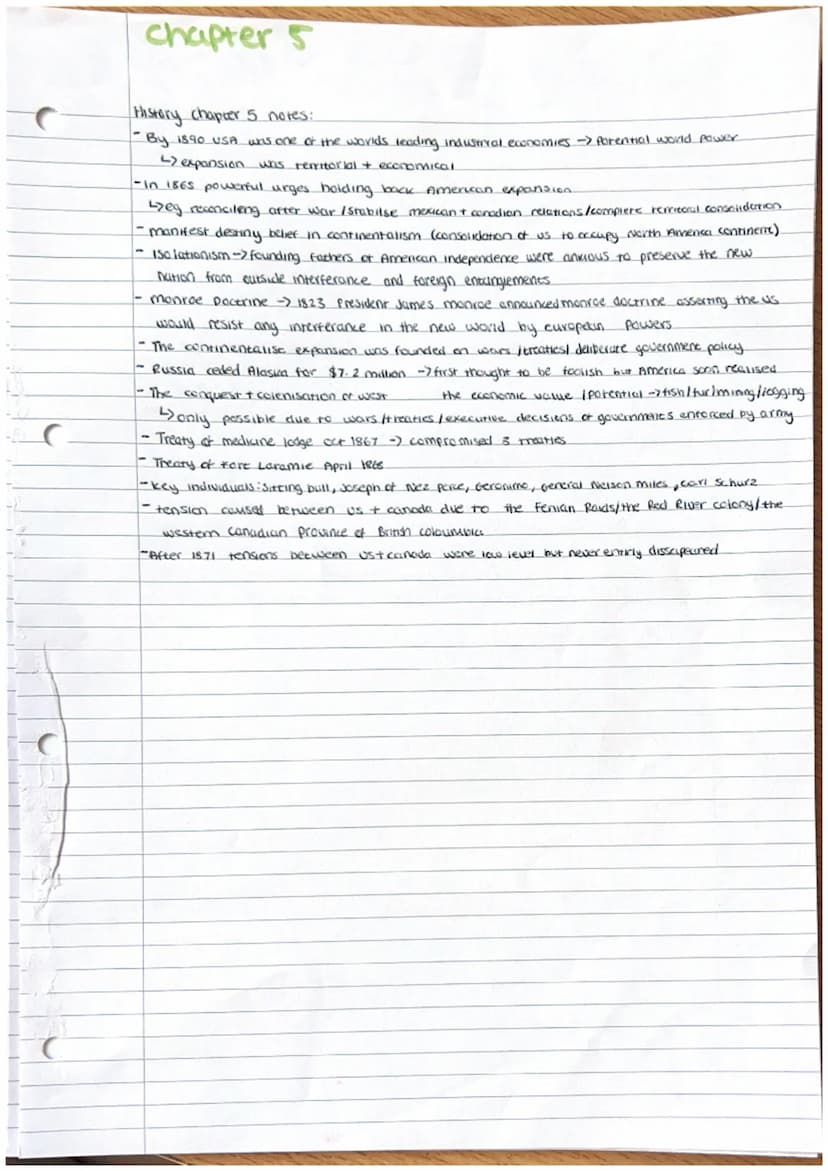 chapter 5
History chapter 5 notes:
- By 1890 USA was one of the worlds leading industrial economies -> Potential world power
↳ expansion was territorial + economical
- In 1865 powerful urges holding back American expansion
↳ eg reconcileng after war / stabilse mexican + canadian relations / complete territorial consolidation
- manifest destiny belief in continentalism (consolidation of US to occupy North America continent)
- Isolationism -> founding fathers of American independence were anxious to preserve the new
nation from outside interferance and foreign entanglements
- monroe Doctrine -> 1823 President James monroe announced monroe doctrine asserting the US
would resist any interferance in the new world by european Powers
- The continentalise expansion was founded on wars / treaties / deliberate government policy
- Russia ceded Alaska for $7.2 million -> first thought to be foolish but America soon realised
- The conquest + colonisation of west the economic value / potential -> fish / fur / mining / logging
↳ only possible due to wars / treaties / executive decisions of governments enforced by army
- Treaty of medicine lodge oct 1867 -> compromised 3 treaties
- Treaty of Fort Laramie April 1868
- Key individuals: Sitting bull, Joseph of Nez perce, Geronimo, General Nelson miles, Carl Schurz
- tension caused between US + canada due to the Fenian Raids / the Red River colony / the
western Canadian Province of British coloumbia
- After 1871 tensions between US + canada were low level but never entirly dissapeared